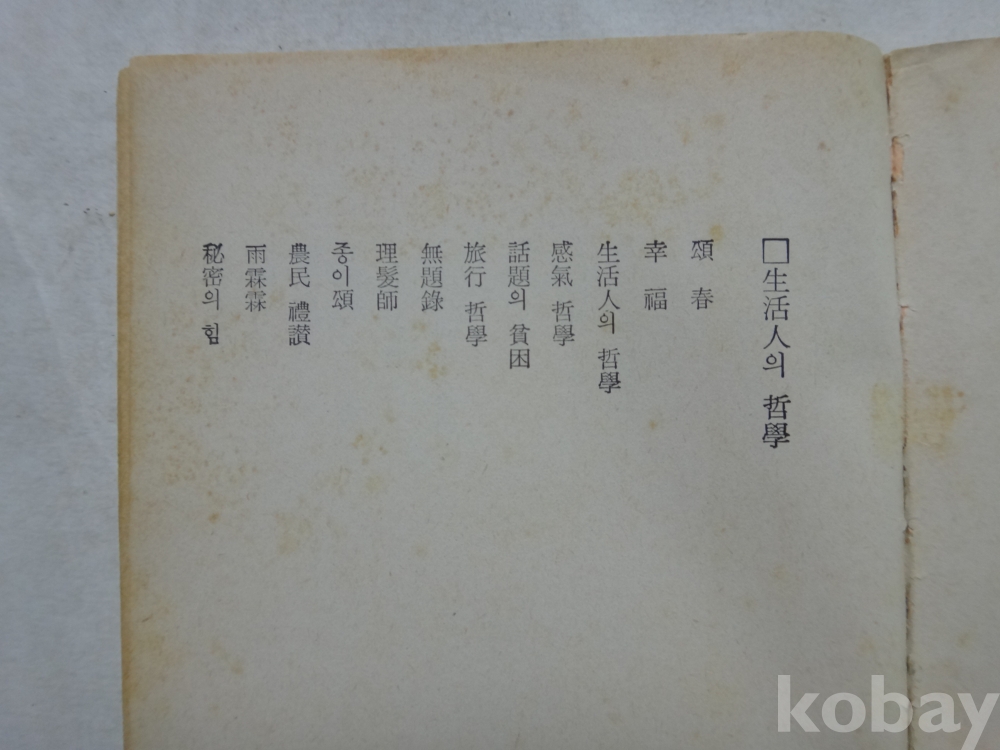 □生活人의 哲學
頌春
幸福
生活人의 哲學
感氣 哲學
話題의 貧困
旅行 哲學
無題錄
理髮師
종이頌
農民 禮讃
雨霖霖
秘密의 힘
kobay